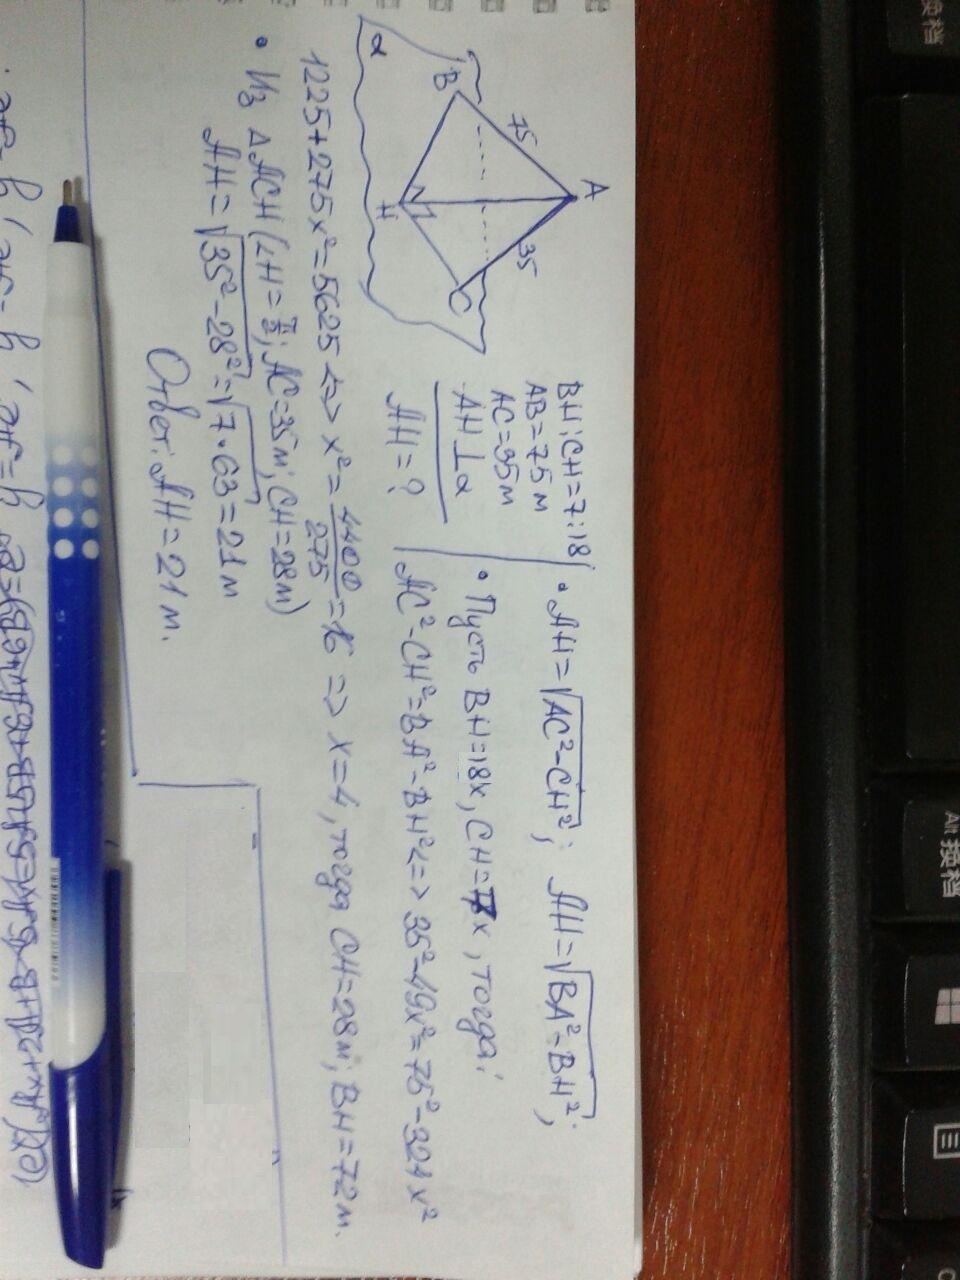 A
75
35
B
C
H
α
BH:CH=7:18
AB=75м
AC=35м
AH⊥α
AH=?
• AH=√AC²-CH²; AH=√BA²-BH²;
• Пусть BH=18x, CH=7x, тогда:
AC²-CH²=BA²-BH²<=>35²-49x²=75²-324x²
1225+275x²=5625<=>x²=4400/275=16=>x=4, тогда CH=28м; BH=72м.
• Из ΔACH (∠H=π/2; AC=35м; CH=28м)
AH=√35²-28²=√7·63=21м
Ответ: AH=21м.
Alt 換檔
換檔